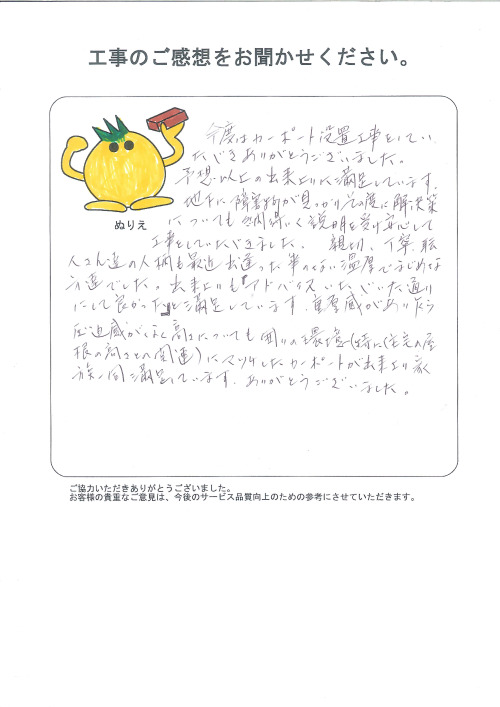 工事のご感想をお聞かせください。
今度はカーポート設置工事をしてい
ただきありがとうございました。
予想以上の出来上りに満足しています。
地下に障害物が見つかりその度に解決策
についても納得いく説明を受け安心して
ぬりえ
工事をしていただきました。親切、丁寧、職
人さん達の人柄も最近出逢った事のない温厚でまじめな
方達でした。出来上りもアドバイスいただいた通り
にして良かったと満足しています。重厚感がありながら
圧迫感がなく高さについても囲りの環境(特に住宅の屋
根の高さとの関連)にマッチしたカーポートが出来上り家
族一同満足しています。ありがとうございました。
ご協力いただきありがとうございました。
お客様の貴重なご意見は、今後のサービス品質向上のための参考にさせていただきます。